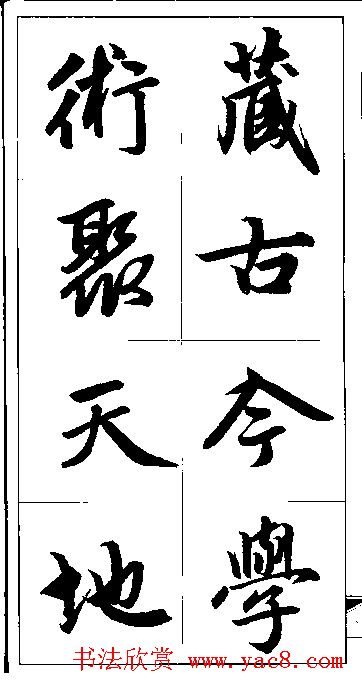 藏古今學
術聚天地
书法欣赏 www.yac8.com